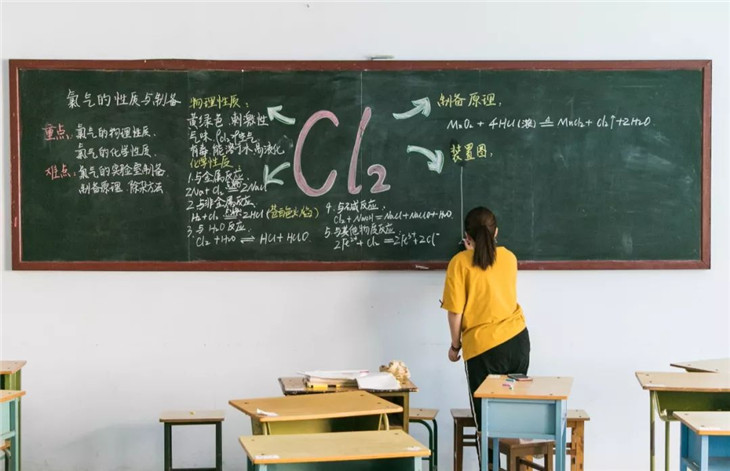 氯气的性质与制备
重点：氯气的物理性质．
氯气的化学性质．
难点：氯气的实验室制备
制备原理．除杂方法
物理性质：
黄绿色．刺激性
气味．
有毒 能溶于水 易液化
化学性质
1.与金属反应
2Na+Cl₂ 点燃 2NaCl
2.与非金属反应．
H₂+Cl₂ 点燃 2HCl (苍白色火焰)
3.与H₂O反应．
Cl₂+H₂O ⇌ HCl+HClO．
Cl₂
4.与碱反应．
Cl₂+NaOH=NaCl+NaClO+H₂O．
5.与其他物质反应：
2Fe²⁺+Cl₂=2Fe³⁺+2Cl⁻
制备原理．
MnO₂+4HCl(浓) △ MnCl₂+Cl₂↑+2H₂O
装置图：